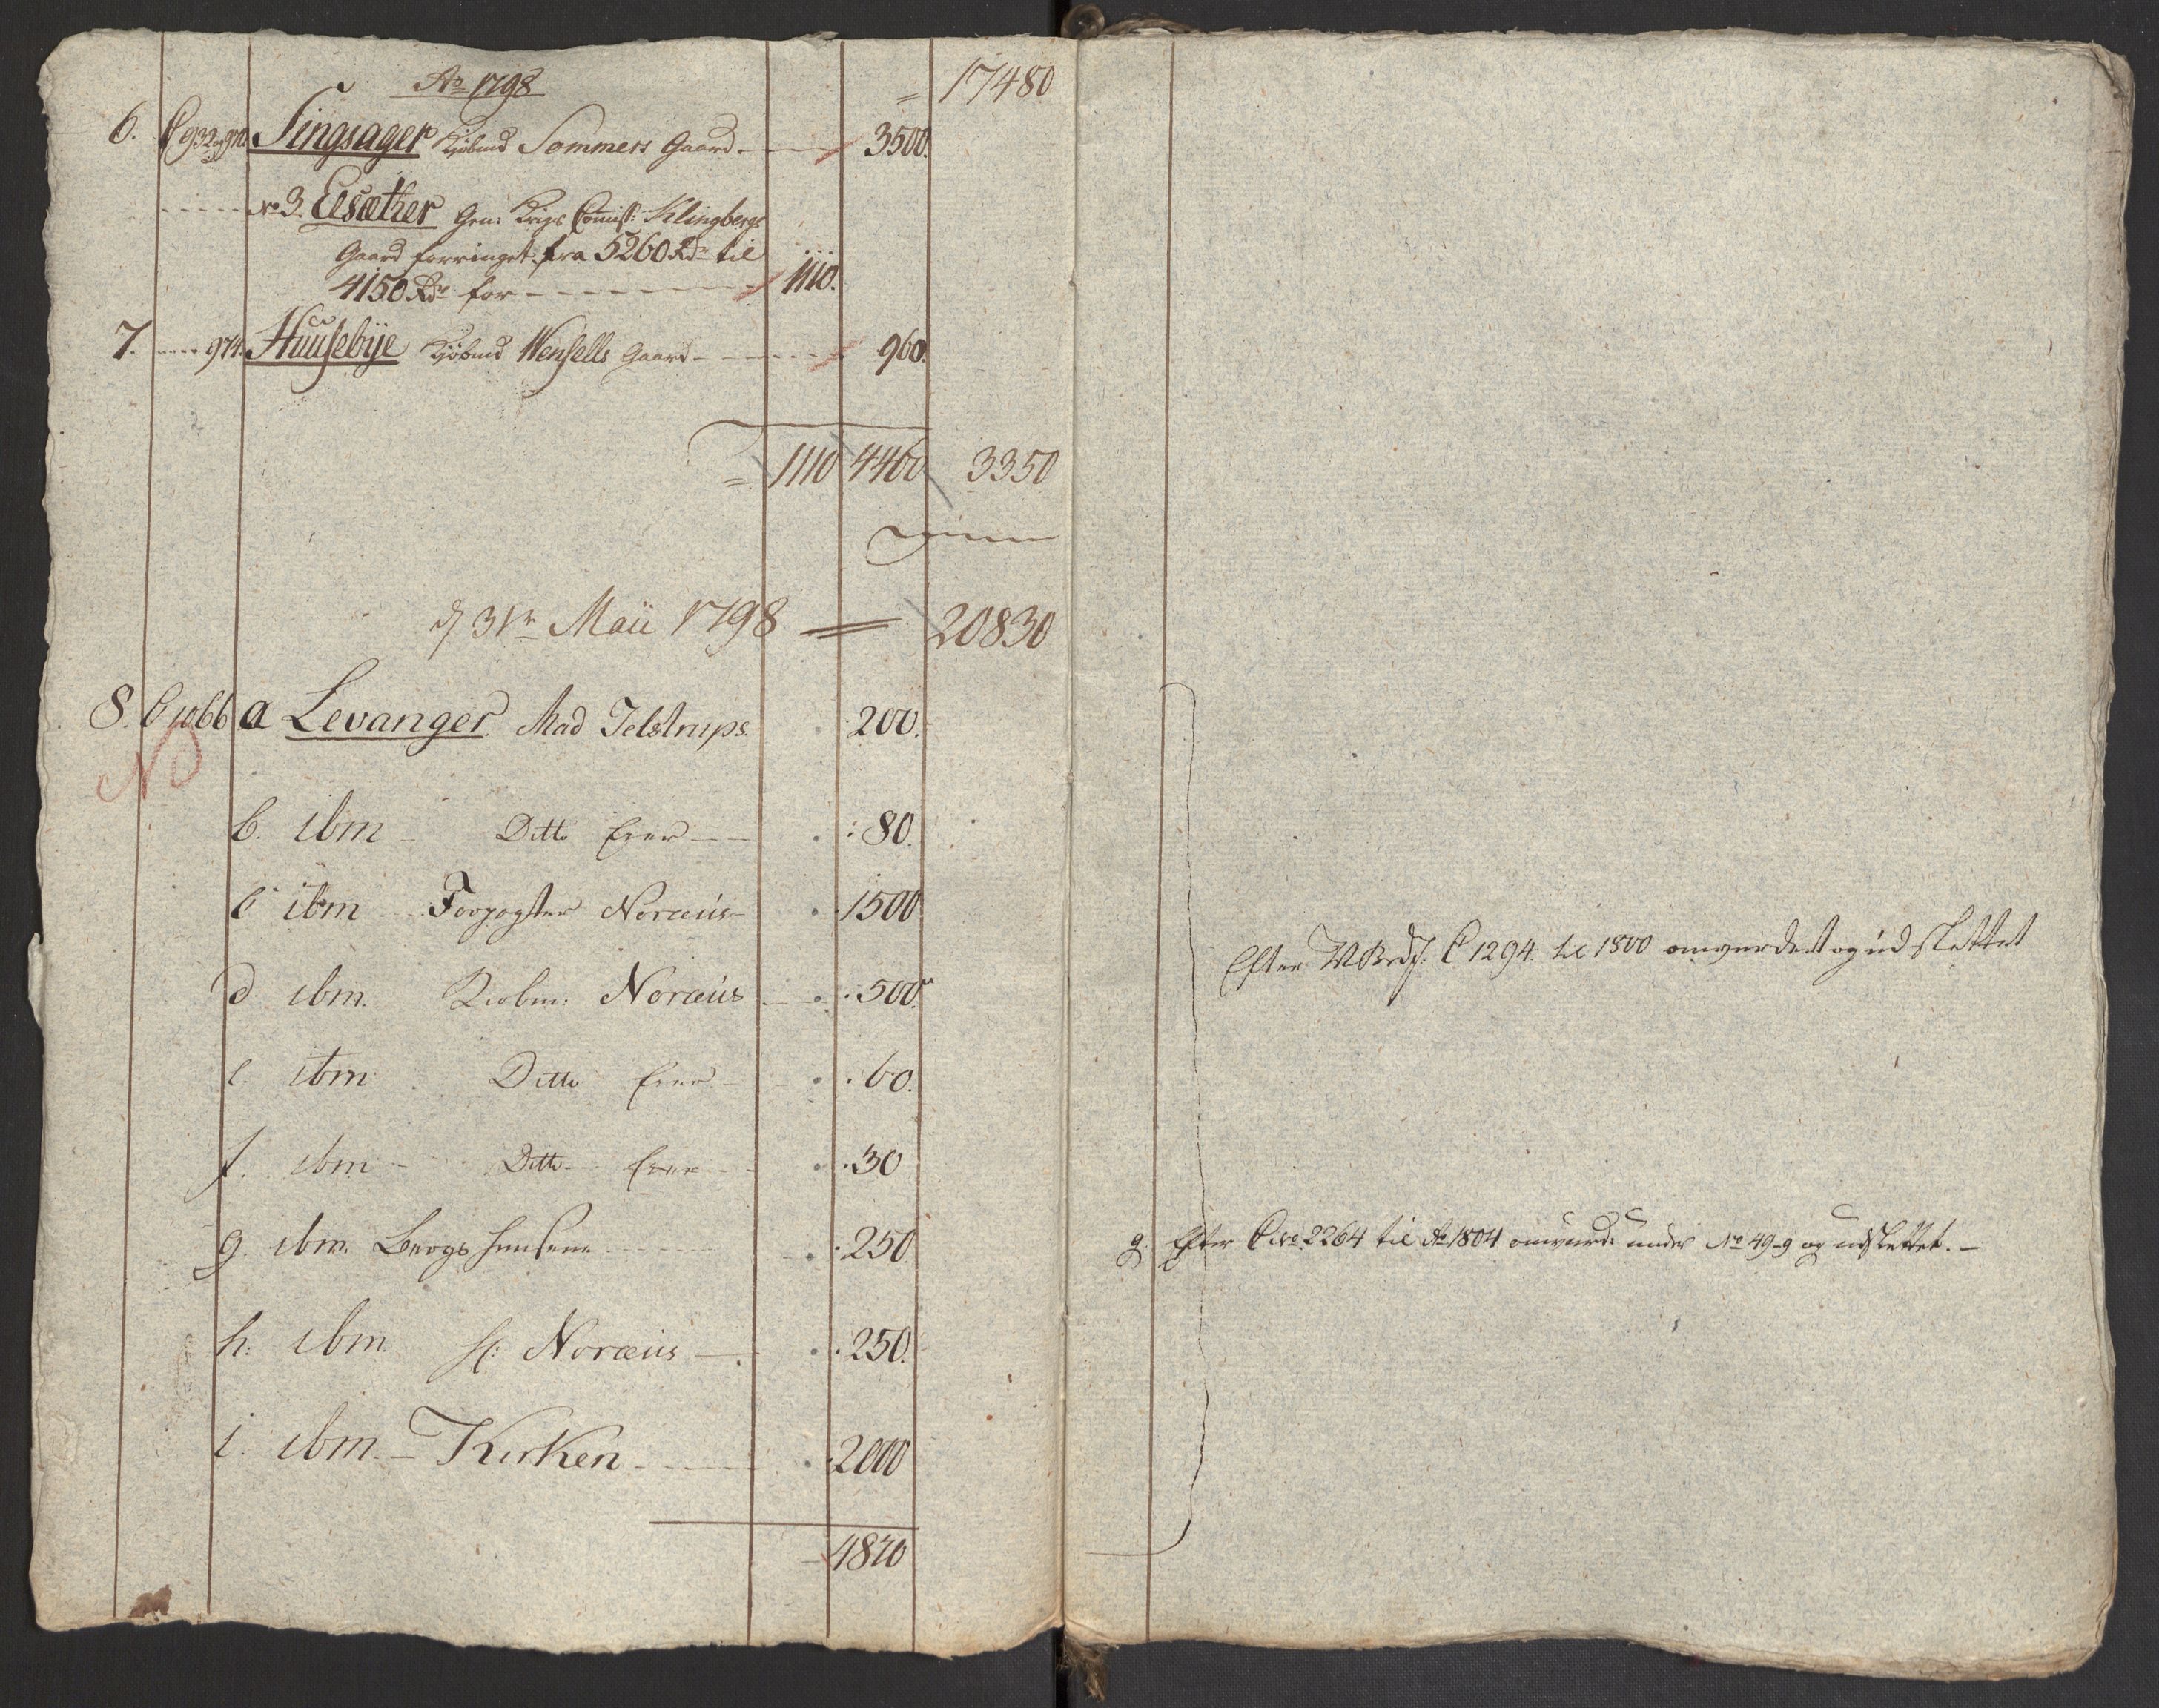 Ao 1798
17480
6. C 932 og 970 Singsager Kjøbmd Sommers Gaard 3500.
No 3. Elsæther Gen: Krigs Commiss: Klingbergs
Gaard forringet fra 5260 Rdr til
4150 Rdr for 1110.
7. 974. Huusebye Kjøbmd Wensells Gaard 960.
1110 4460 3350
d 31te Maii 1798 20830
8. C 1066 a Levanger Mad Jelstrups 200.
NB
b. ibm Ditto 80.
c ibm Noræus 1500
d. ibm. Kiobm: Noræus 500.
e. ibm Ditto 60.
f. ibm Ditto 30
g. ibm. Bergs 250.
h. ibm. Sl: Noræus 250.
i. ibm. Kirken 2000
4870
Efter C 1294. til 1800 omvurdert og udslettet
g Efter C No 2264 til Ao 1804 omvurd: under No 49-g og udslettet.